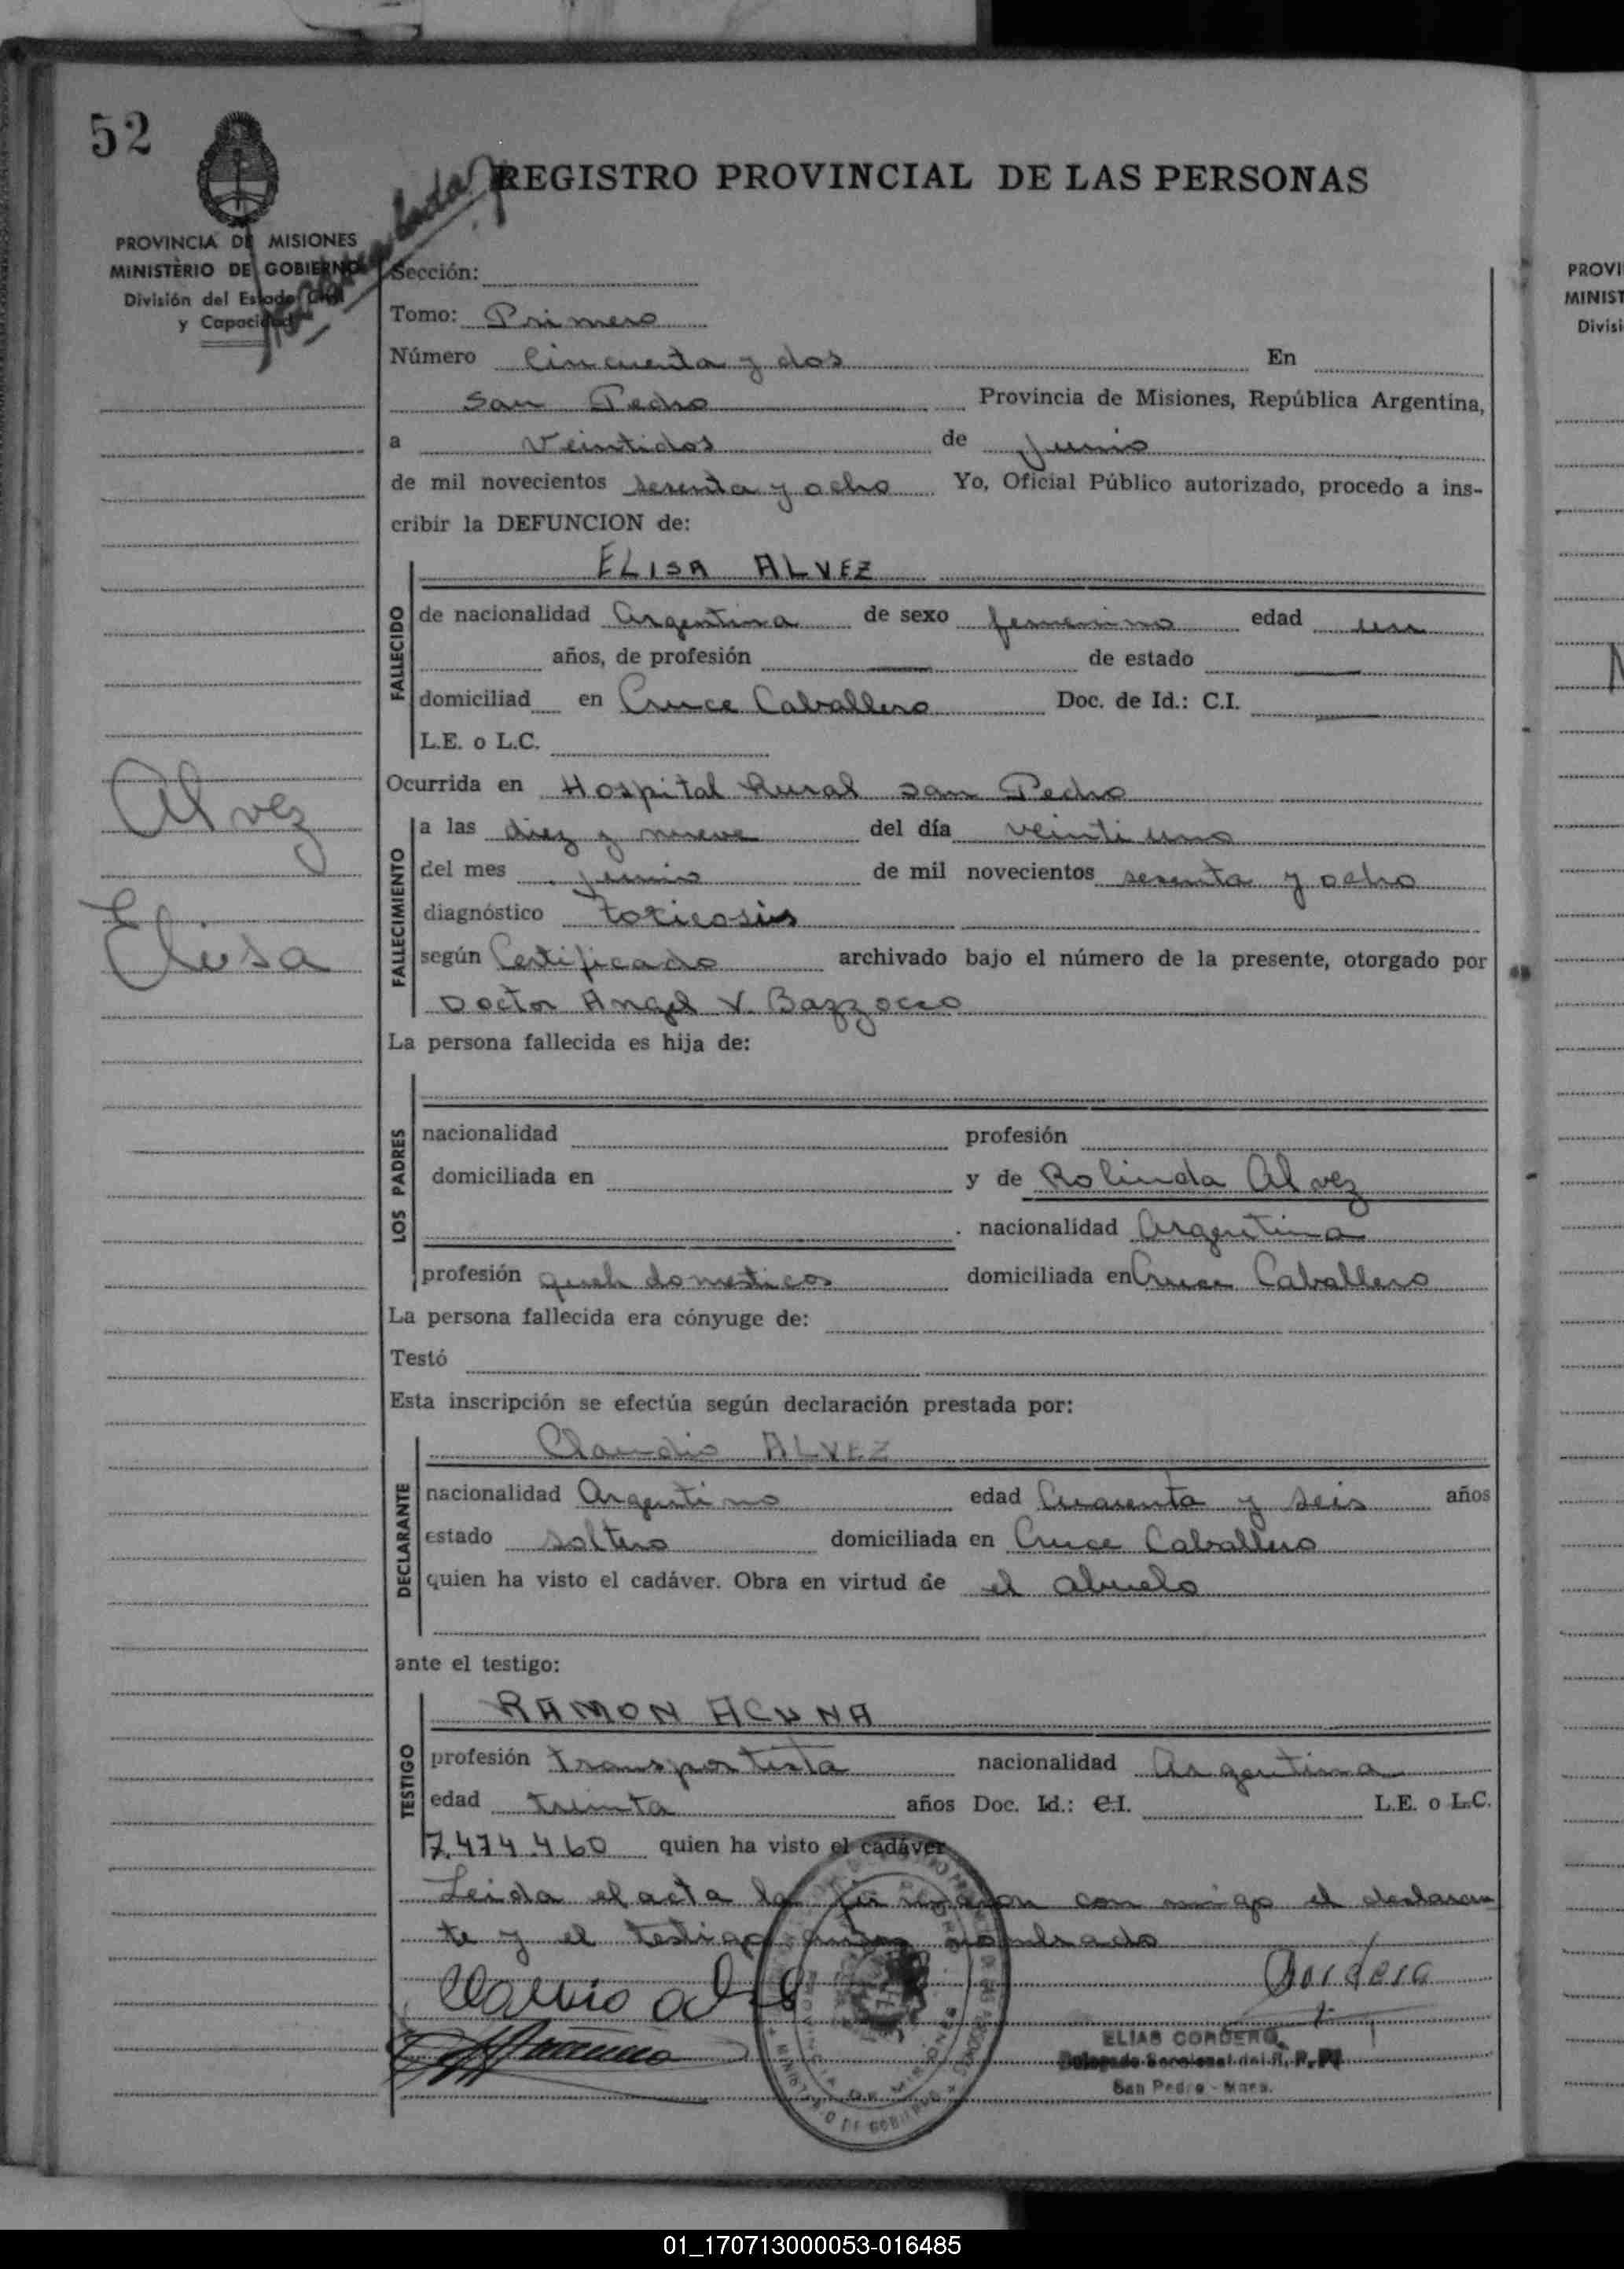 52
REGISTRO PROVINCIAL DE LAS PERSONAS
PROVINCIA DE MISIONES
MINISTERIO DE GOBIERNO
División del Estado Civil
y Capacidad
Sección:
Tomo: Primero
Número Cincuenta y dos En
San Pedro Provincia de Misiones, República Argentina,
a Veintidos de Junio
de mil novecientos sesenta y ocho Yo, Oficial Público autorizado, procedo a ins-
cribir la DEFUNCION de:
FALLECIDO
ELISA ALVEZ
de nacionalidad Argentina de sexo femenino edad un
años, de profesión — de estado —
domiciliad en Cruce Caballero Doc. de Id.: C.I. —
L.E. o L.C.
Alvez
Elisa
Ocurrida en Hospital Rural San Pedro
FALLECIMIENTO
a las diez y nueve del día veintiuno
del mes junio de mil novecientos sesenta y ocho
diagnóstico toxicosis
según Certificado archivado bajo el número de la presente, otorgado por
Doctor Angel V. Bazzocco
La persona fallecida es hija de:
LOS PADRES
nacionalidad profesión
domiciliada en y de Rolinda Alvez
nacionalidad Argentina
profesión domesticos domiciliada en Cruce Caballero
La persona fallecida era cónyuge de:
Testó
Esta inscripción se efectúa según declaración prestada por:
DECLARANTE
Claudio ALVEZ
nacionalidad Argentino edad Cuarenta y seis años
estado soltero domiciliada en Cruce Caballero
quien ha visto el cadáver. Obra en virtud de el abuelo
ante el testigo:
TESTIGO
RAMON ACUNA
profesión transportista nacionalidad Argentina
edad treinta años Doc. Id.: C.I. L.E. o L.C.
7.474.460 quien ha visto el cadáver
Leida el acta la firmaron con migo el declaran
te y el testigo antes nombrado
ELIAS CORDERO
Delegado Seccional del R. P. P.
San Pedro - Mnes.
PROVI
MINIST
Divisi
01_170713000053-016485